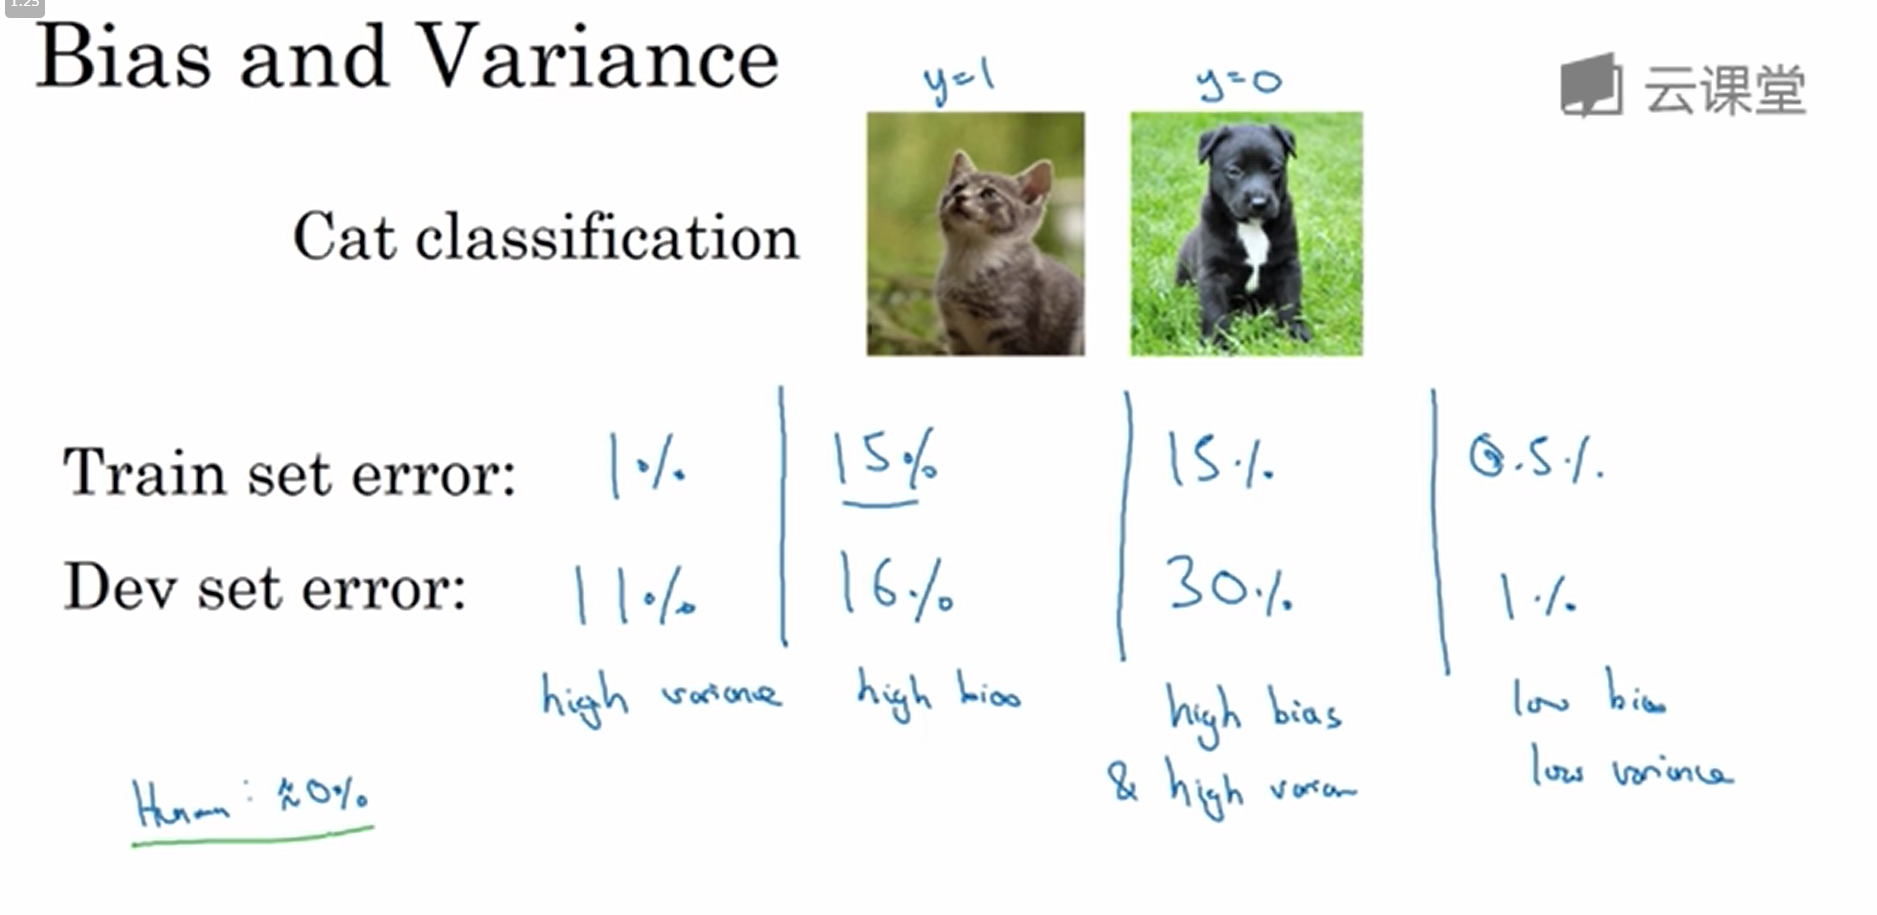 1:25
Bias and Variance
y=1
y=0
云课堂
Cat classification
Train set error: 1% 15% 15% 0.5%
Dev set error: 11% 16% 30% 1%
high variance high bias high bias low bias
& high varian low variance
Human: ≈0%